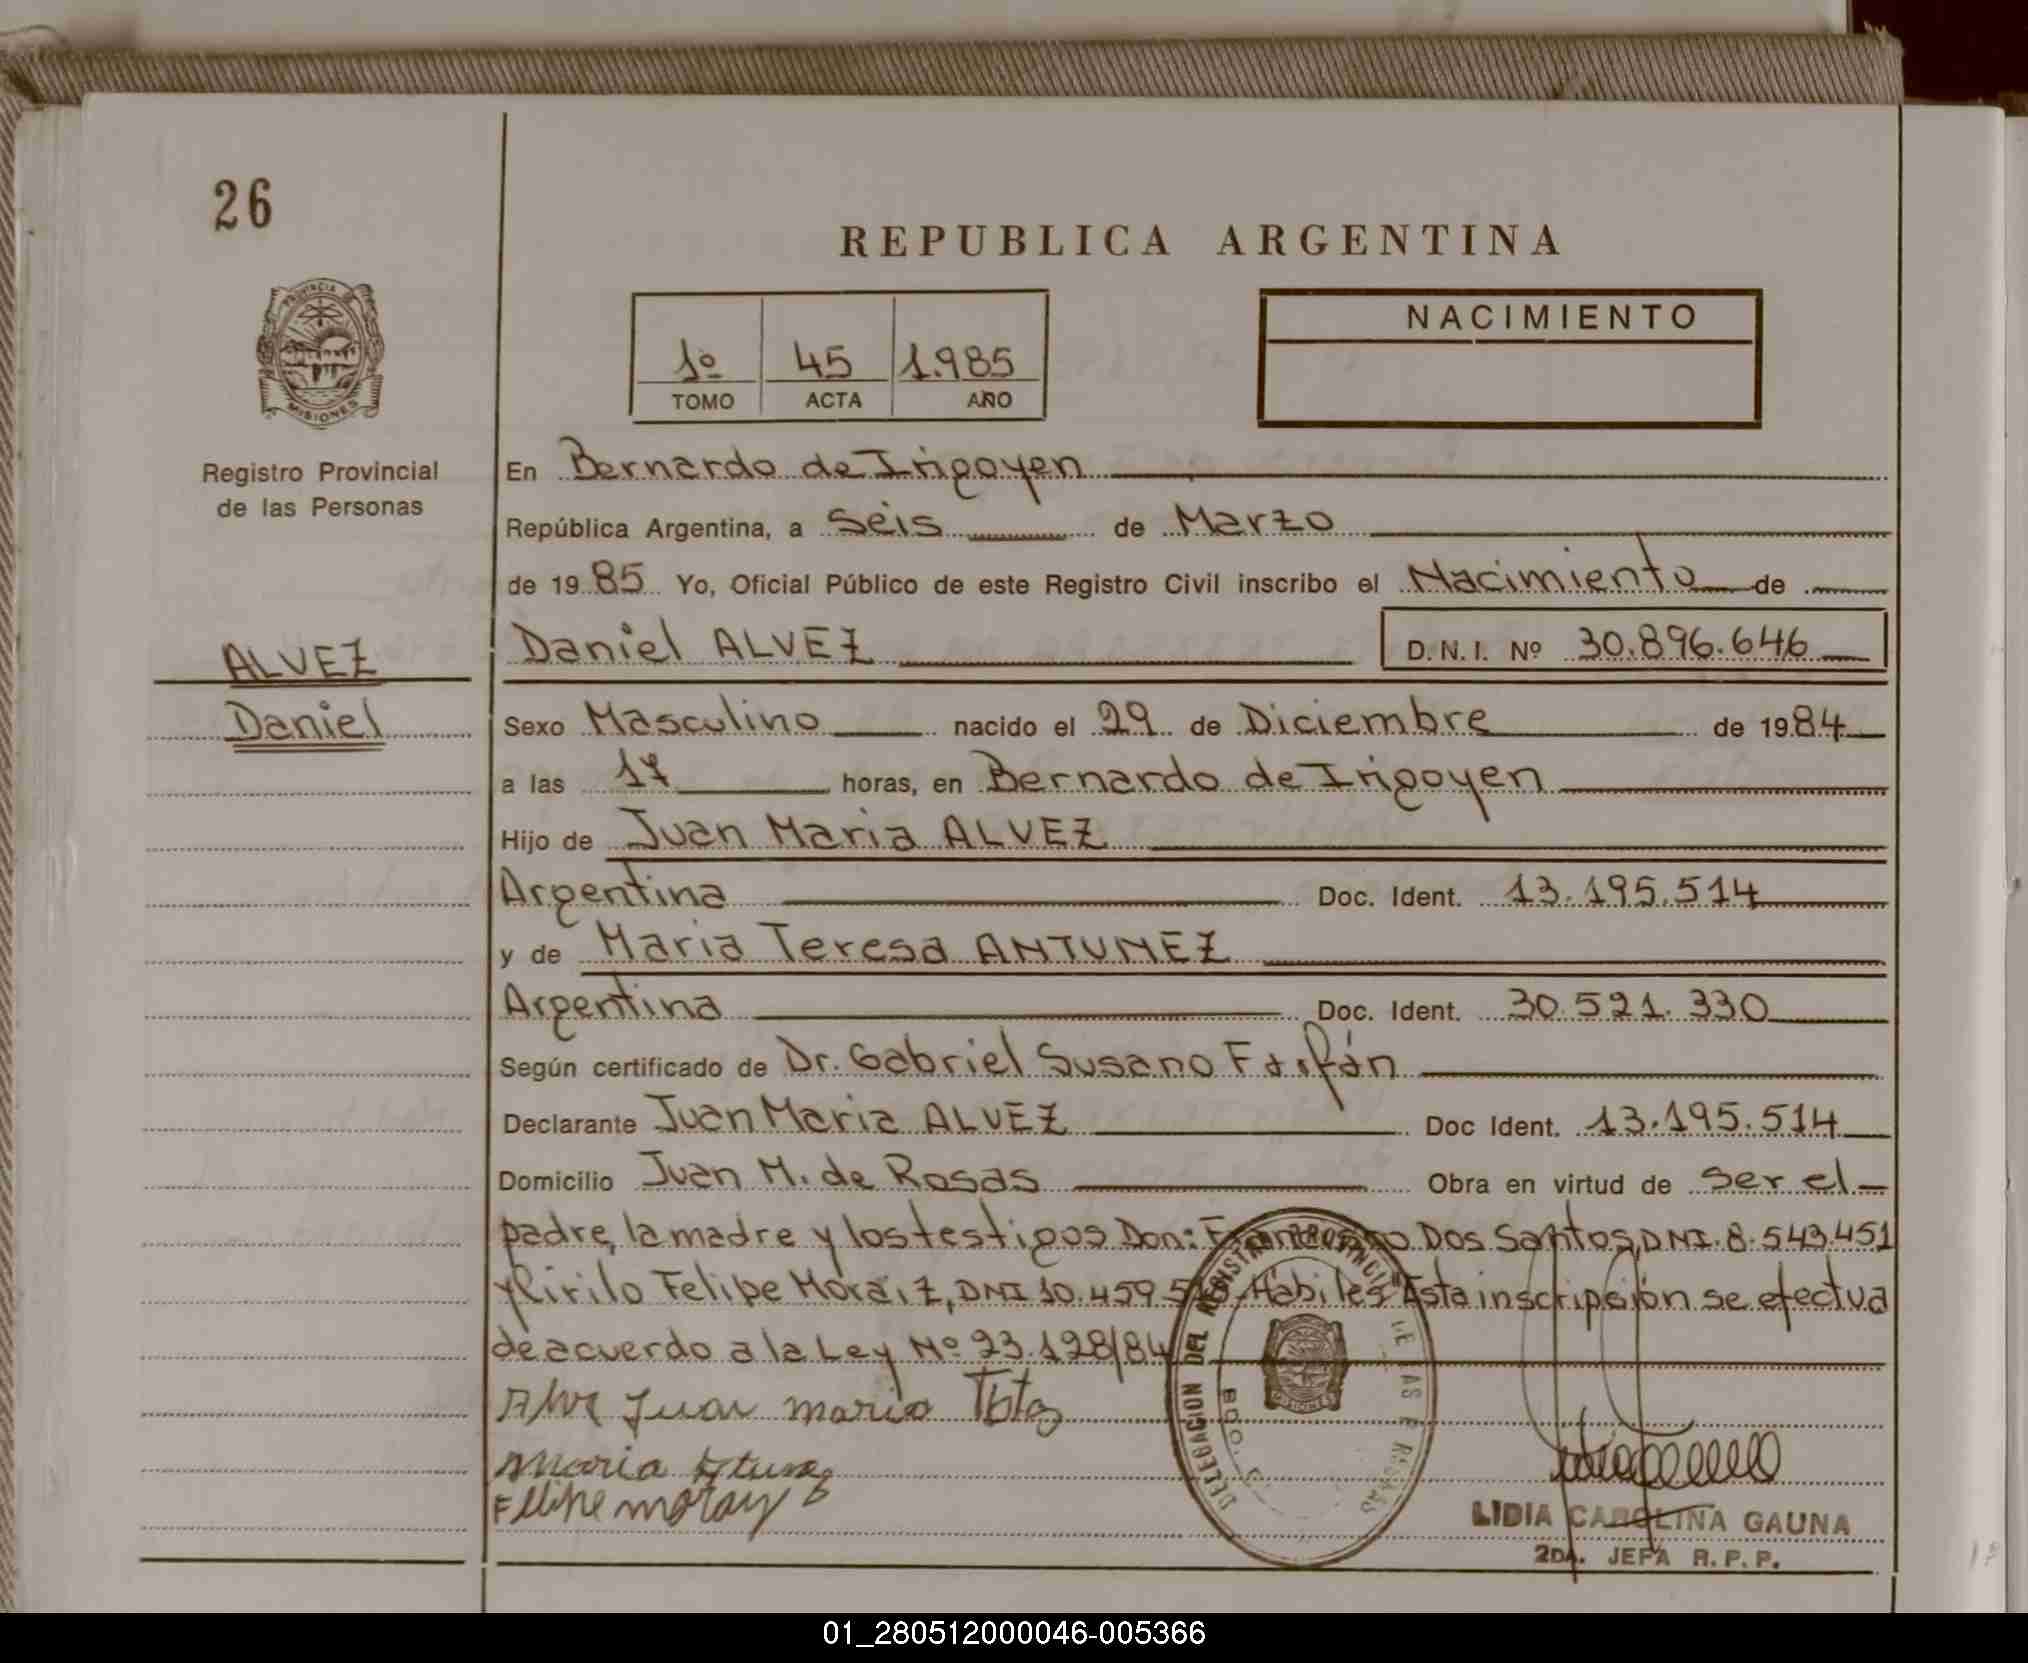 26
REPUBLICA ARGENTINA
PROVINCIA DE
MISIONES
1º 45 1.985
TOMO ACTA AÑO
NACIMIENTO
Registro Provincial
de las Personas
En Bernardo de Irigoyen
República Argentina, a Seis de Marzo
de 19 85 Yo, Oficial Público de este Registro Civil inscribo el Nacimiento de
ALVEZ
Daniel
Daniel ALVEZ D.N.I. Nº 30.896.646
Sexo Masculino nacido el 29 de Diciembre de 1984
a las 17 horas, en Bernardo de Irigoyen
Hijo de Juan Maria ALVEZ
Argentina Doc. Ident. 13.195.514
y de Maria Teresa ANTUNEZ
Argentina Doc. Ident. 30.521.330
Según certificado de Dr. Gabriel Susano Farfán
Declarante Juan Maria ALVEZ Doc Ident. 13.195.514
Domicilio Juan M. de Rosas Obra en virtud de ser el
padre, la madre y los testigos Don: Dos Santos, DNI. 8.543.451
y Cirilo Felipe Moraiz, DNI 10.459.5 Hábiles" Esta inscripsión se efectua
de acuerdo a la Ley Nº 23.128/84
Juan maria
maria
Felipe moray
DELEGACION DEL REGISTRO PROVINCIAL DE LAS PERSONAS
BDO.
MISIONES
LIDIA CAROLINA GAUNA
2DA. JEFA R.P.P.
01_280512000046-005366